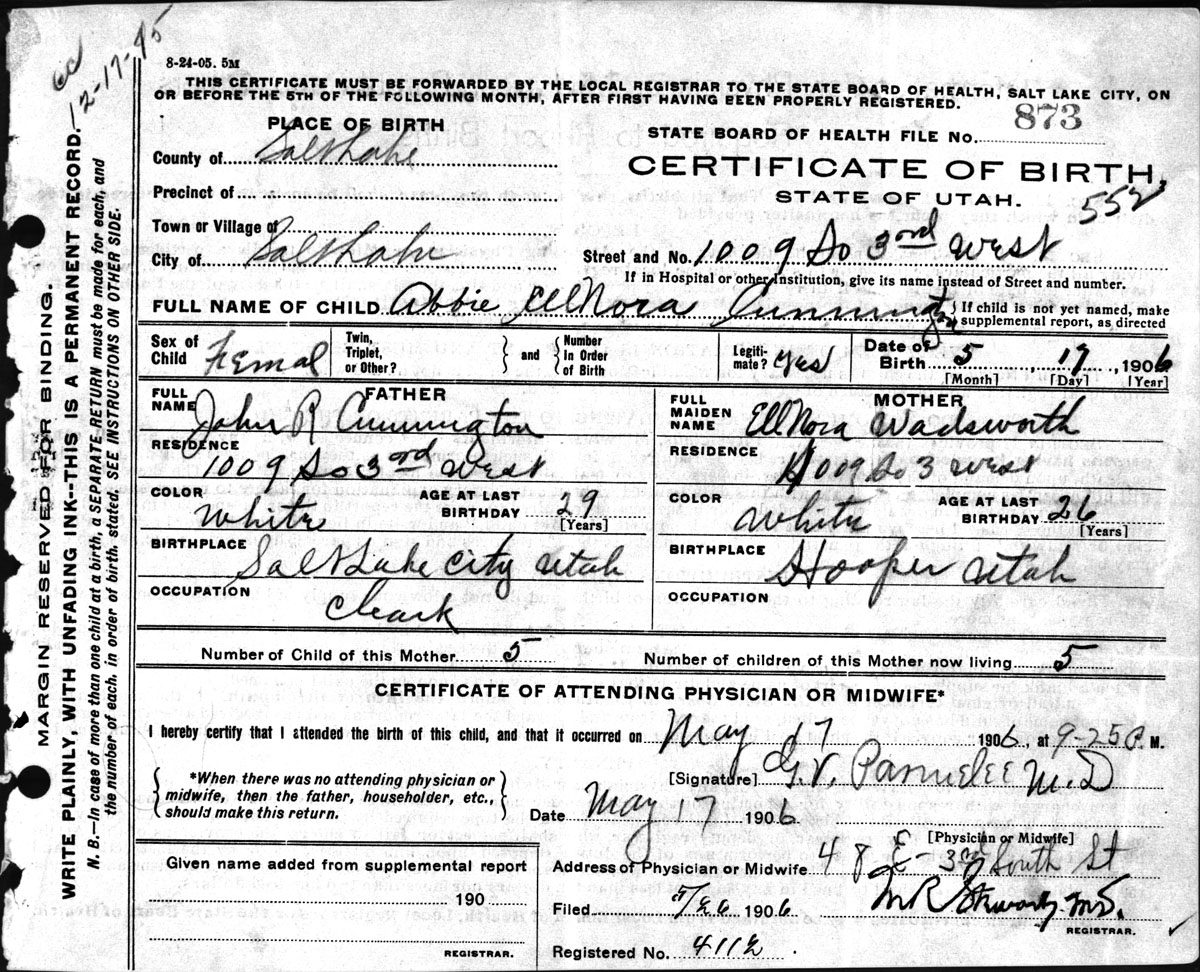 cd
12-17-45
8-24-05. 5M
THIS CERTIFICATE MUST BE FORWARDED BY THE LOCAL REGISTRAR TO THE STATE BOARD OF HEALTH, SALT LAKE CITY, ON
OR BEFORE THE 5TH OF THE FOLLOWING MONTH, AFTER FIRST HAVING BEEN PROPERLY REGISTERED.
PLACE OF BIRTH
STATE BOARD OF HEALTH FILE No. 873
County of Salt Lake
CERTIFICATE OF BIRTH,
Precinct of
STATE OF UTAH. 552
Town or Village of
City of Salt Lake
Street and No. 1009 So 3rd West
If in Hospital or other Institution, give its name instead of Street and number.
FULL NAME OF CHILD Abbie EllNora Cunnington } If child is not yet named, make
supplemental report, as directed
Sex of Child Femal
Twin, Triplet, or Other? } and { Number In Order of Birth
Legiti-mate? yes
Date of Birth 5 17, 1906
[Month] [Day] [Year]
FATHER
FULL NAME John R Cunnington
RESIDENCE 1009 So 3rd West
COLOR White
AGE AT LAST BIRTHDAY 29
[Years]
BIRTHPLACE Salt Lake City Utah
OCCUPATION Cleark
MOTHER
FULL MAIDEN NAME EllNora Wadsworth
RESIDENCE 1009 So 3 West
COLOR White
AGE AT LAST BIRTHDAY 26
[Years]
BIRTHPLACE Hooper Utah
OCCUPATION
Number of Child of this Mother 5
Number of children of this Mother now living 5
CERTIFICATE OF ATTENDING PHYSICIAN OR MIDWIFE*
I hereby certify that I attended the birth of this child, and that it occurred on May 17 1906, at 9-25 P. M.
{ *When there was no attending physician or
midwife, then the father, householder, etc.,
should make this return. }
[Signature] G. V. Parmelee M.D
Date May 17 1906
[Physician or Midwife]
Given name added from supplemental report
190
REGISTRAR.
Address of Physician or Midwife 48 E - 3rd South St
Filed 5/26 1906
M.D.
REGISTRAR.
Registered No. 4112
MARGIN RESERVED FOR BINDING.
WRITE PLAINLY, WITH UNFADING INK--THIS IS A PERMANENT RECORD.
N. B.—In case of more than one child at a birth, a SEPARATE RETURN must be made for each, and
the number of each, in order of birth, stated. SEE INSTRUCTIONS ON OTHER SIDE.